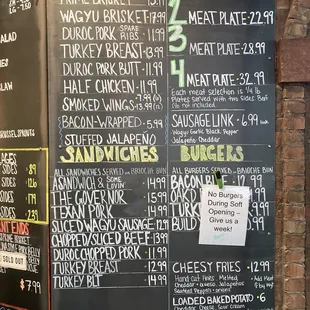 LG - 7.50
SALAD
SLAW
BRUSSEL SPROUTS
SIDES 8.9
SIDES 12.6
SIDES 17.9
BURNT ENDS
SOLD OUT
$7.99
PRIME BRISKET
WAGYU BRISKET 17.99
DUROC PORK SPARE RIBS - 11.99
TURKEY BREAST - 13.99
DUROC PORK BUTT - 11.99
HALF CHICKEN - 11.99
SMOKED WINGS
BACON-WRAPPED - 5.99
STUFFED JALAPEÑO
SANDWICHES
ALL SANDWICHES SERVED ON BRIOCHE BUN
A SANDWICH & SOME LOVIN - 14.99
THE GOVERNOR - 15.99
TEXAN PORK - 14.99
SLICED WAGYU SAUSAGE 12.99
CHOPPED/SLICED BEEF 13.99
DUROC CHOPPED PORK - 11.99
TURKEY BREAST - 12.99
TURKEY BLT - 14.99
2 MEAT PLATE - 22.99
3 MEAT PLATE - 28.99
4 MEAT PLATE - 32.99
Each meat selection is 1/4 lb
Plates served with two sides
not included
SAUSAGE LINK - 6.99
Wagyu Garlic Black Pepper
Jalapeño Cheddar
BURGERS
ALL BURGERS SERVED ON BRIOCHE BUN
BACON
OAK
TURK
BUILD
No Burgers
During Soft
Opening -
Give us a
week!
CHEESY FRIES - 12.99
Hand Cut Fries Melted
Cheddar + Queso, Jalapeños
+ Add Meat
LOADED BAKED POTATO - 6
Cheddar Cheese, Sour Cream